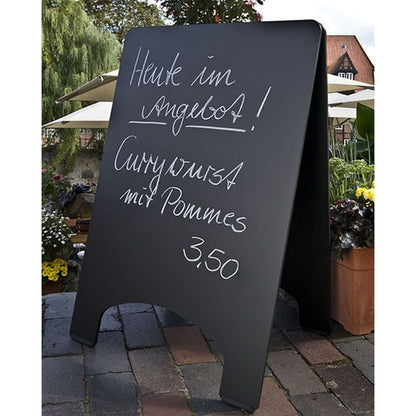 Heute im
Angebot!
Currywurst
mit Pommes
3,50